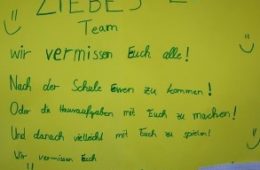 LIEBES
Team
wir vermissen Euch alle!
Nach der Schule Euren zu kommen!
Oder die Hausaufgaben mit Euch zu machen!
Und danach vielleicht mit Euch zu spielen!
Wir vermissen Euch